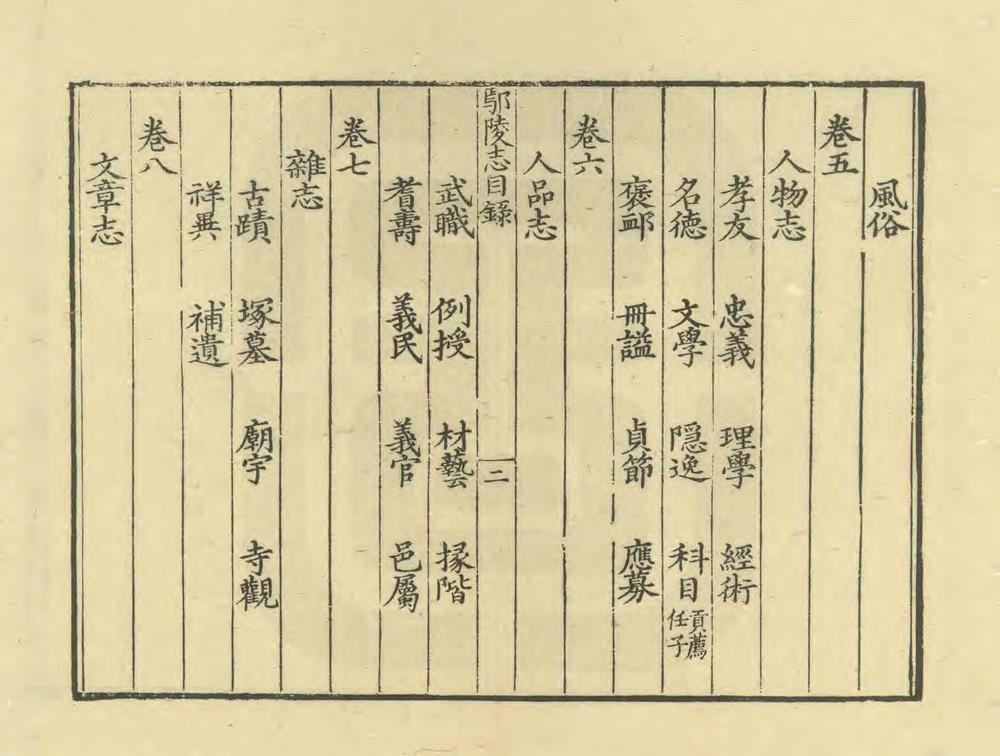 風俗
卷五
人物志
孝友 忠義 理學 經術
名德 文學 隱逸 科目 貢薦 任子
褒卹 冊謚 貞節 應募
卷六
人品志
鄢陵志目錄 二
武職 例授 材藝 掾階
耆壽 義民 義官 邑屬
卷七
雜志
古蹟 塚墓 廟宇 寺觀
祥異 補遺
卷八
文章志